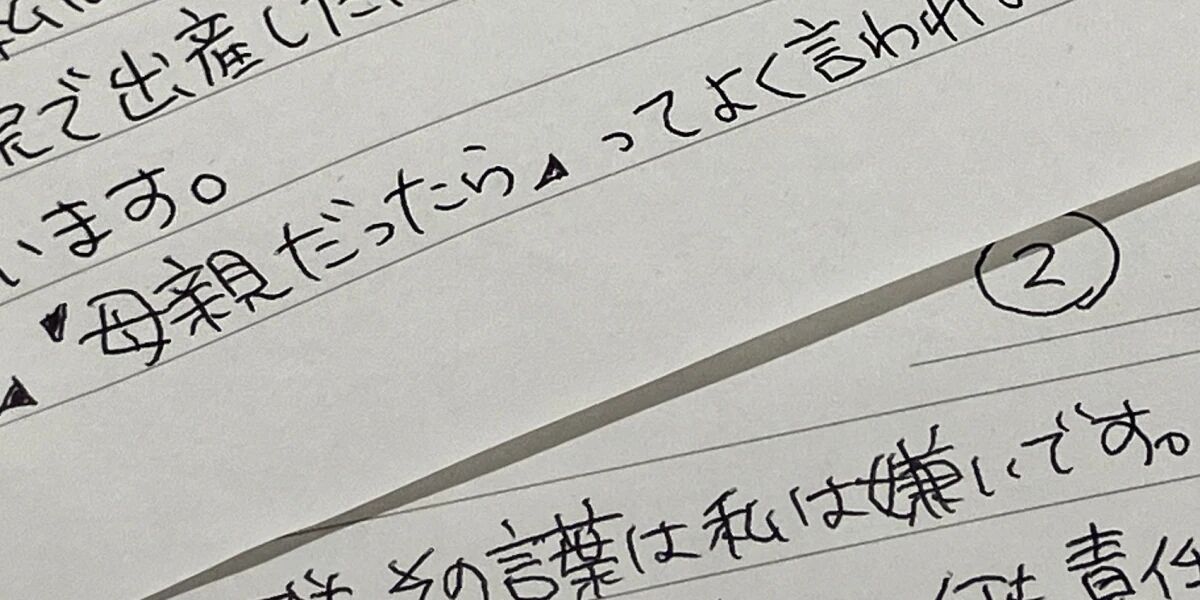 で出産した
います。
▲ ▼母親だったら▲ ってよく言われ
②
その言葉は私は嫌いです。
責任